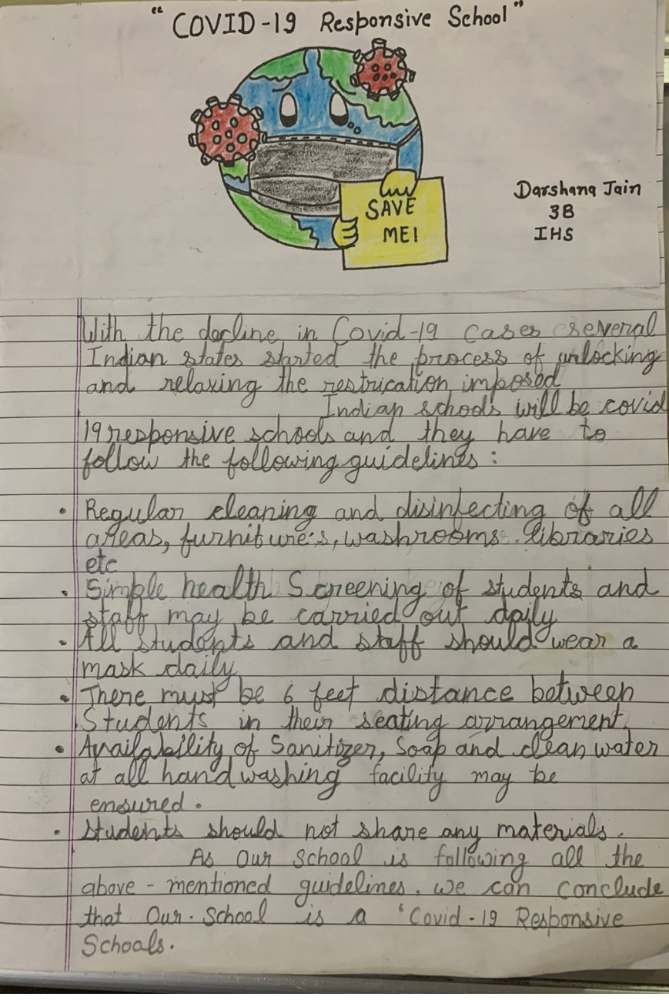 "COVID-19 Responsive School"
SAVE
ME!
Darshana Jain
3B
IHS
With the decline in Covid-19 cases several
Indian states started the process of unlocking
and relaxing the restrication imposed
Indian schools will be covid
19 responsive schools and they have to
follow the following guidelines :
• Regular cleaning and disinfecting of all
areas, furniture's, washrooms. libraries
etc
• Simple health Screening of students and
staff may be carried out daily
• All students and staff should wear a
mask daily
• There must be 6 feet distance between
Students in their seating arrangement.
• Availability of Sanitizer, Soap and clean water
at all hand washing facility may be
ensured.
• Students should not share any materials.
As Our School is following all the
above-mentioned guidelines. we can conclude
that Our. School is a 'Covid-19 Responsive
Schools.